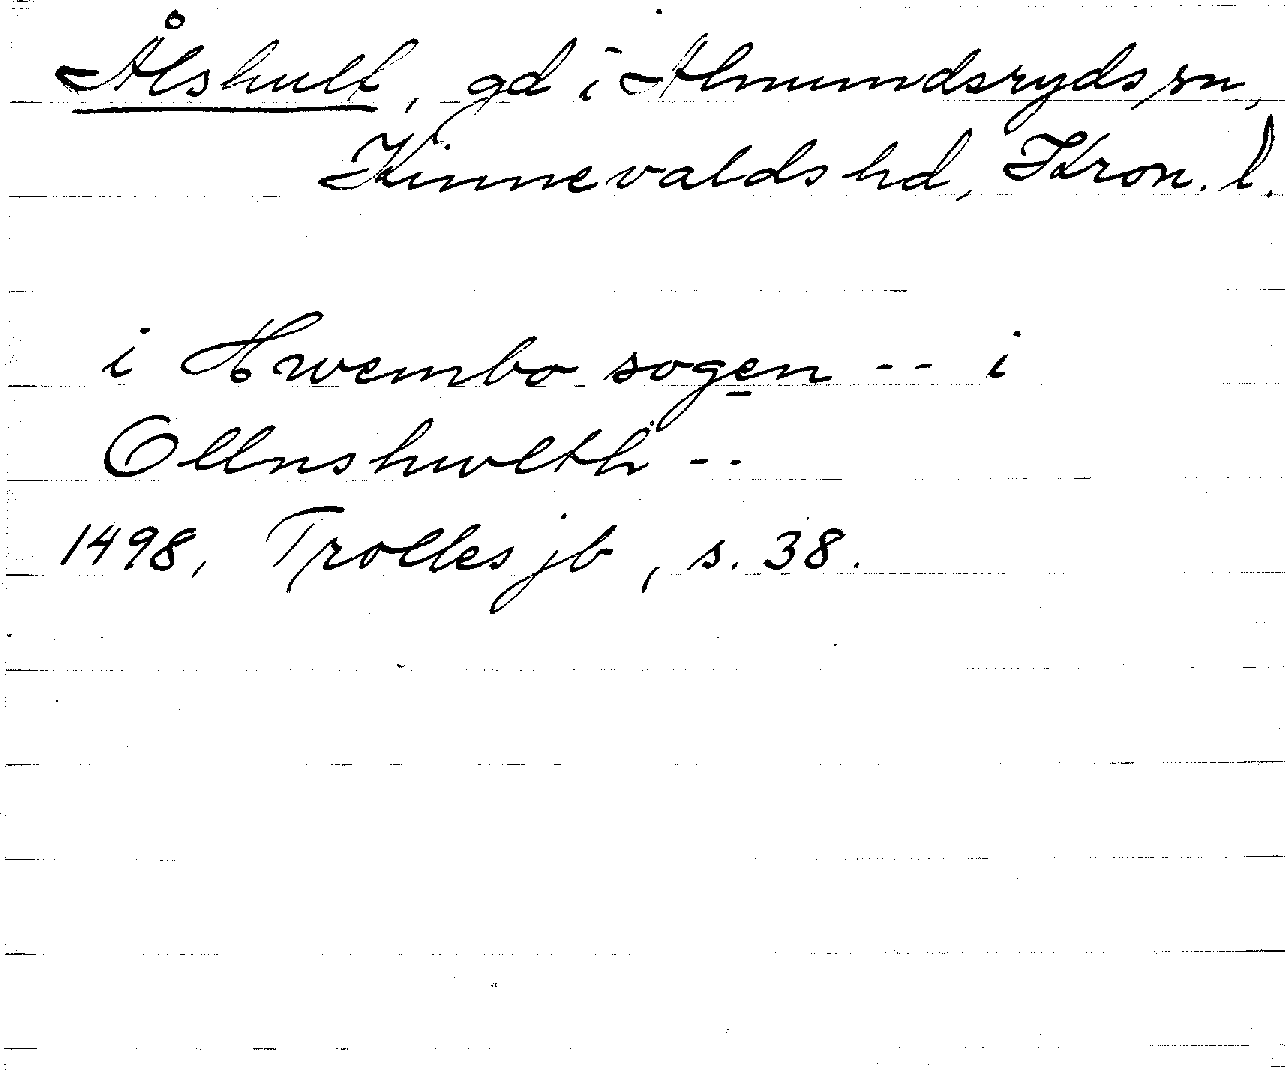 Ålshult, gd i Almundsryds sn,
Kinnevalds hd, Kron. l.
i Hwembo sogen -- i
Ollnshwlth --
1498, Trolles jb, s. 38.